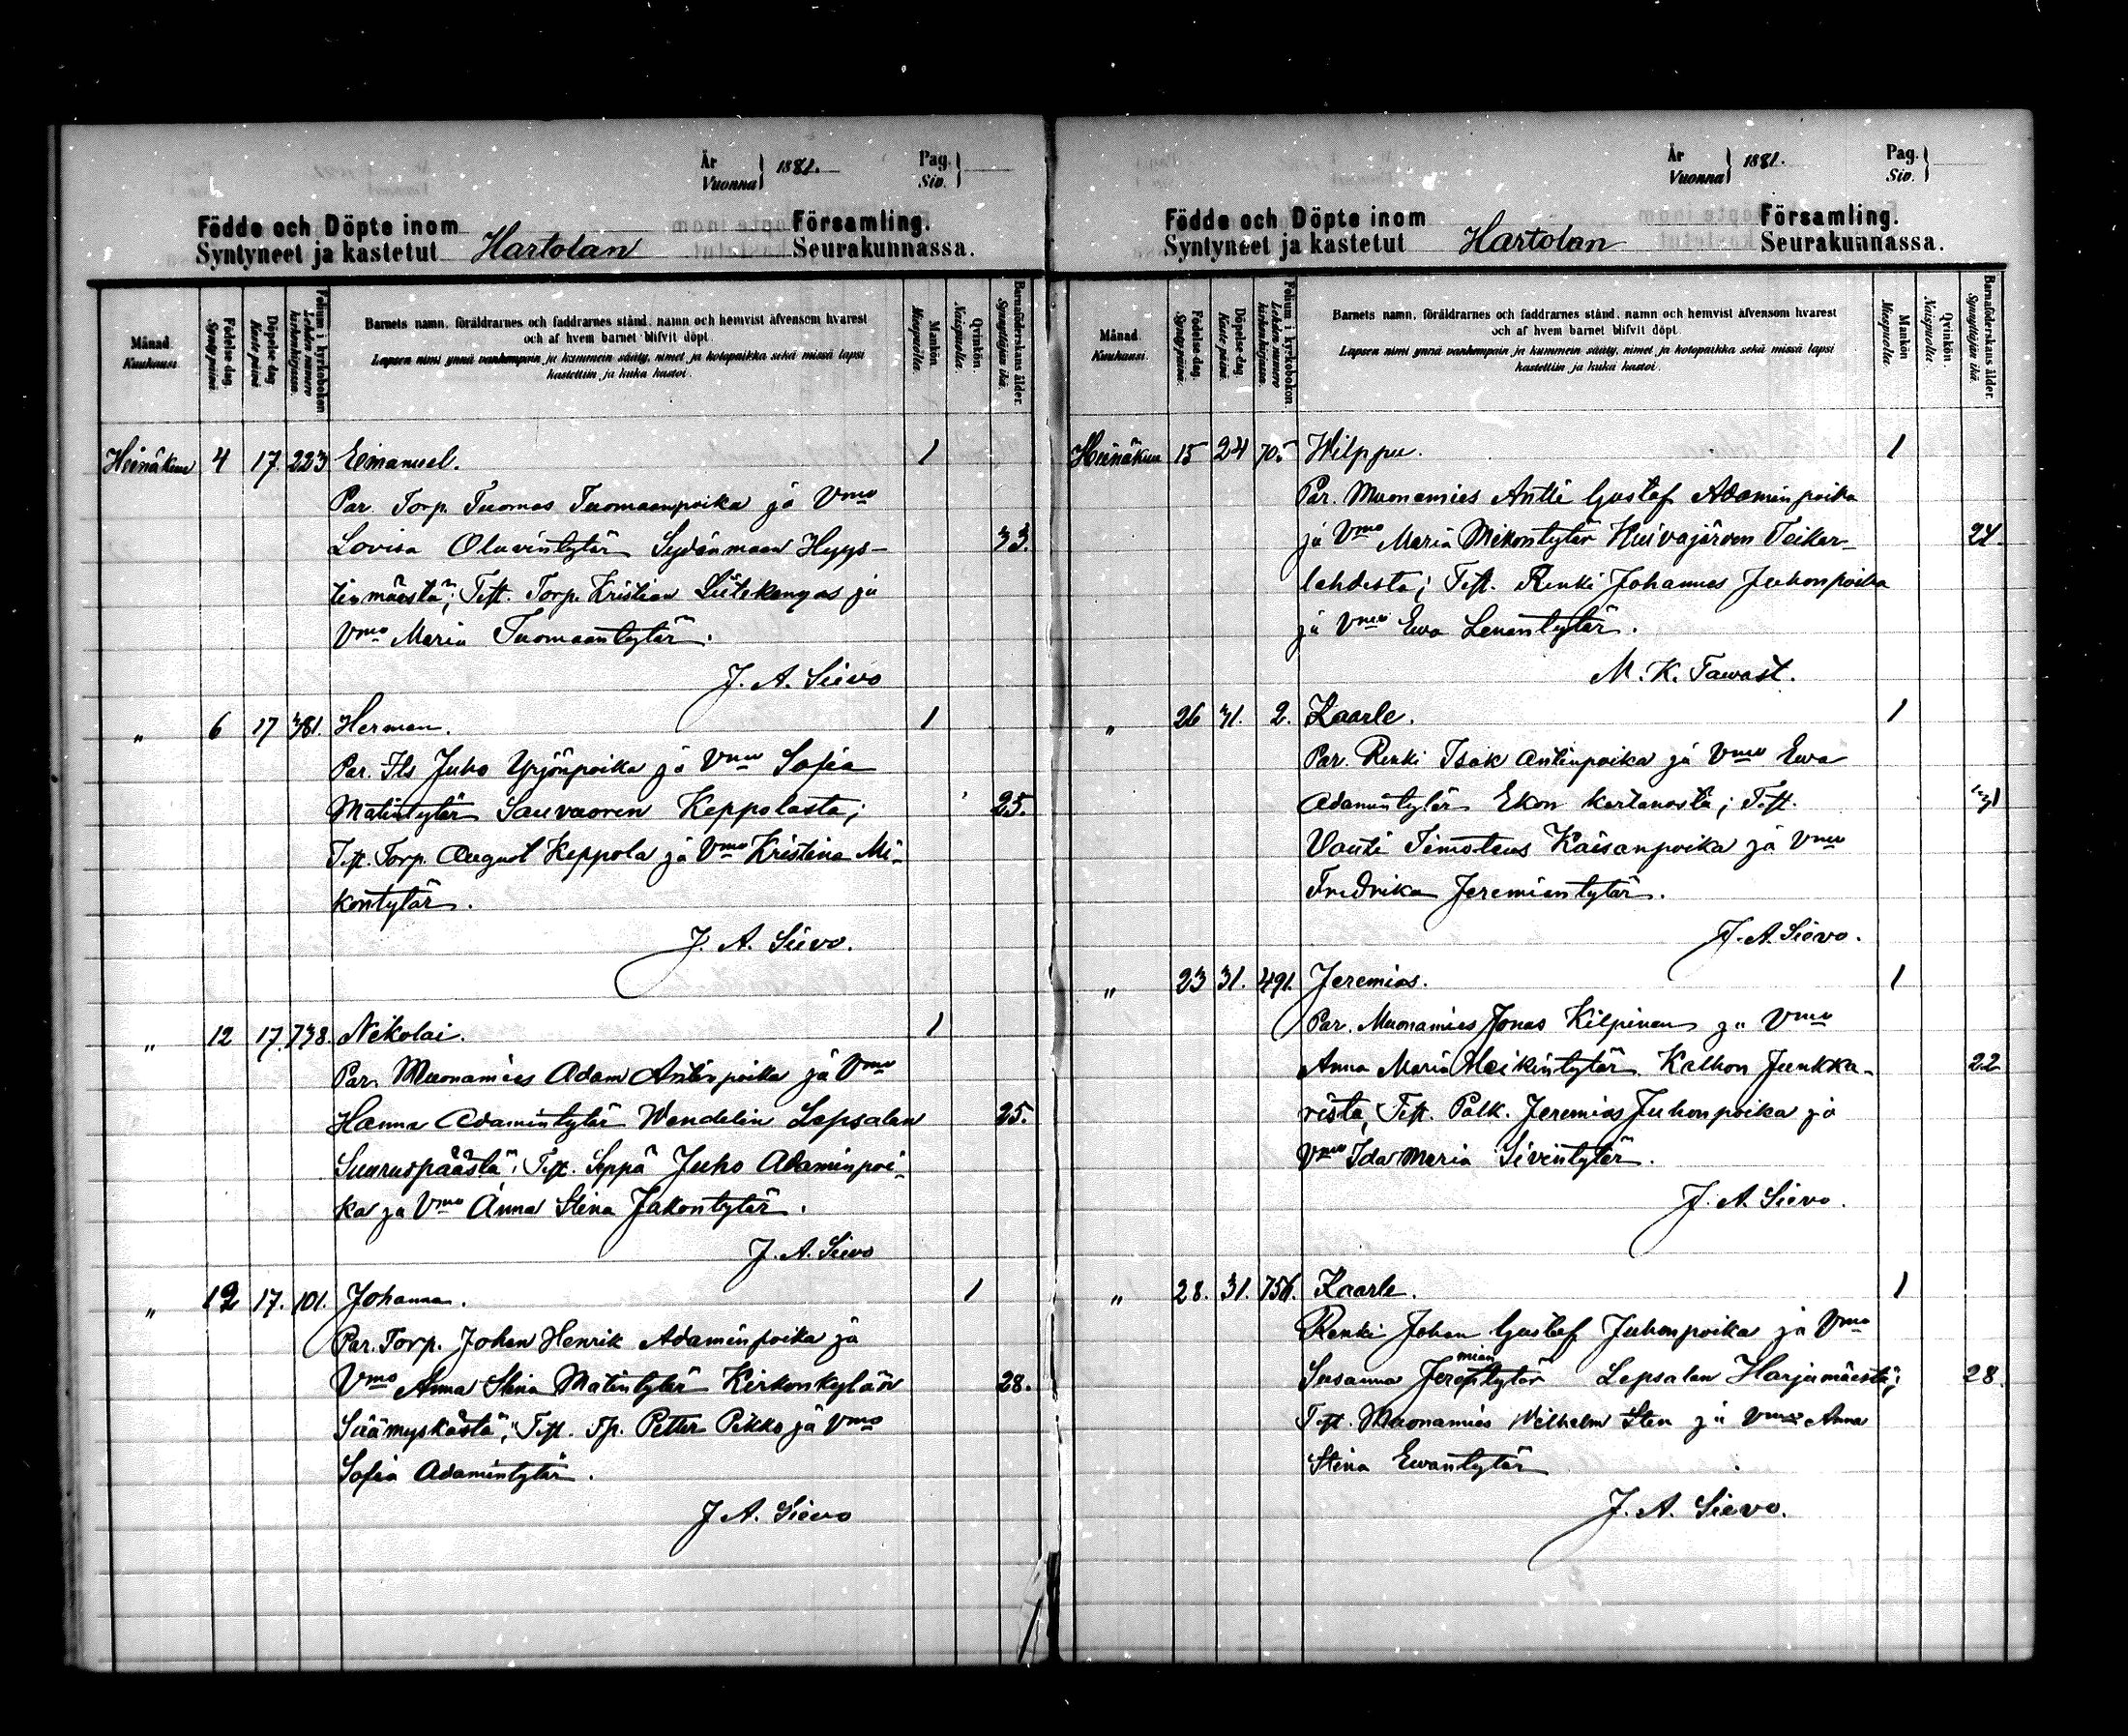 År
Vuonna } 1881.
Pag.
Siv. }
Födde och Döpte inom
Syntyneet ja kastetut Hartolan
Församling.
Seurakunnassa.
Månad
Kuukausi.
Födelse dag.
Synty päivä.
Döpelse dag
Kaste päivä
Folium i kyrkoboken
Lehden numero kirkonkirjassa.
Barnets namn, föräldrarnes och faddrarnes stånd, namn och hemvist äfvensom hvarest
och af hvem barnet blifvit döpt.
Lapsen nimi ynnä vanhempain ja kummein sääty, nimet ja kotopaikka sekä missä lapsi
kastettiin ja kuka kastoi.
Mankön
Miespuolta.
Qvinkön.
Naispuolta.
Barnaföderskans ålder.
Synnyttäjän ikä.
Heinäkuu 4 17 223 Emanuel. 1
Par. Torp. Tuomas Tuomaanpoika ja Vmo
Lovisa Olavintytär Sydänmaan Hyys- 33.
tinmäestä; Test. Torp. Kristian Liitekangas ja
Vmo Maria Tuomaantytär.
J. A. Sievo
" 6 17 381. Herman. 1
Par. Its Juho Yrjönpoika ja Vmo Sofia
Matintytär Sauvaoren Keppolasta; 25.
Test. Torp. August Keppola ja Vmo Kristina Mi-
kontytär.
J. A. Sievo.
" 12 17. 738. Nikolai. 1
Par. Muonamies Adam Antinpoika ja Vmo
Hanna Adamintytär Wendelin Lepsalan 25.
Suuruspäästä; Test. Seppä Juho Adaminpoi-
ka ja Vmo Anna Stina Jakontytär.
J. A. Sievo
" 12 17. 101. Johanna. 1
Par. Torp. Johan Henrik Adaminpoika ja
Vmo Anna Stina Matintytär Kirkonkylään 28.
Säämyskästä; Test. Tp. Petter Pikko ja Vmo
Sofia Adamintytär.
J. A. Sievo
År
Vuonna } 1881.
Pag.
Siv. }
Födde och Döpte inom
Syntyneet ja kastetut Hartolan
Församling.
Seurakunnassa.
Månad
Kuukausi.
Födelse-dag.
Synty päivä.
Döpelse-dag.
Kaste päivä.
Folium i kyrkoboken.
Lehden numero kirkonkirjassa.
Barnets namn, föräldrarnes och faddrarnes stånd, namn och hemvist äfvensom hvarest
och af hvem barnet blifvit döpt.
Lapsen nimi ynnä vanhempain ja kummein sääty, nimet ja kotopaikka sekä missä lapsi
kastettiin ja kuka kastoi.
Mankön
Miespuolta
Qvinkön.
Naispuolta.
Barnaföderskans ålder.
Synnyttäjän ikä.
Heinäkuu 15 24 705 Wilppu. 1
Par. Muonamies Antti Gustaf Adaminpoika
ja Vmo Maria Mikontytär Kuivajärven Teikar- 24.
lahdesta; Test. Renki Johannes Juhonpoika
ja Vmo Ewa Leenantytär.
M. K. Tawast.
" 26 31. 2. Kaarle. 1
Par. Renki Isak Antinpoika ja Vmo Ewa
Adamintytär Ekon kartanosta; Test. 31
Vouti Timoteus Kaisanpoika ja Vmo
Fredrika Jeremiantytär.
J. A. Sievo.
" 23 31. 491. Jeremias. 1
Par. Muonamies Jonas Kilpinen ja Vmo
Anna Maria Heikintytär Kalhon Junkka- 22
rista, Test. Palk. Jeremias Juhonpoika ja
Vmo Ida Maria Sivintytär.
J. A. Sievo.
" 28. 31. 756. Kaarle. 1
Renki Johan Gustaf Juhonpoika ja Vmo
Susanna Jeremiantytär Lepsalan Harjumäestä; 28.
Test. Muonamies Wilhelm Sten ja Vmo Anna
Stina Ewantytär
J. A. Sievo.